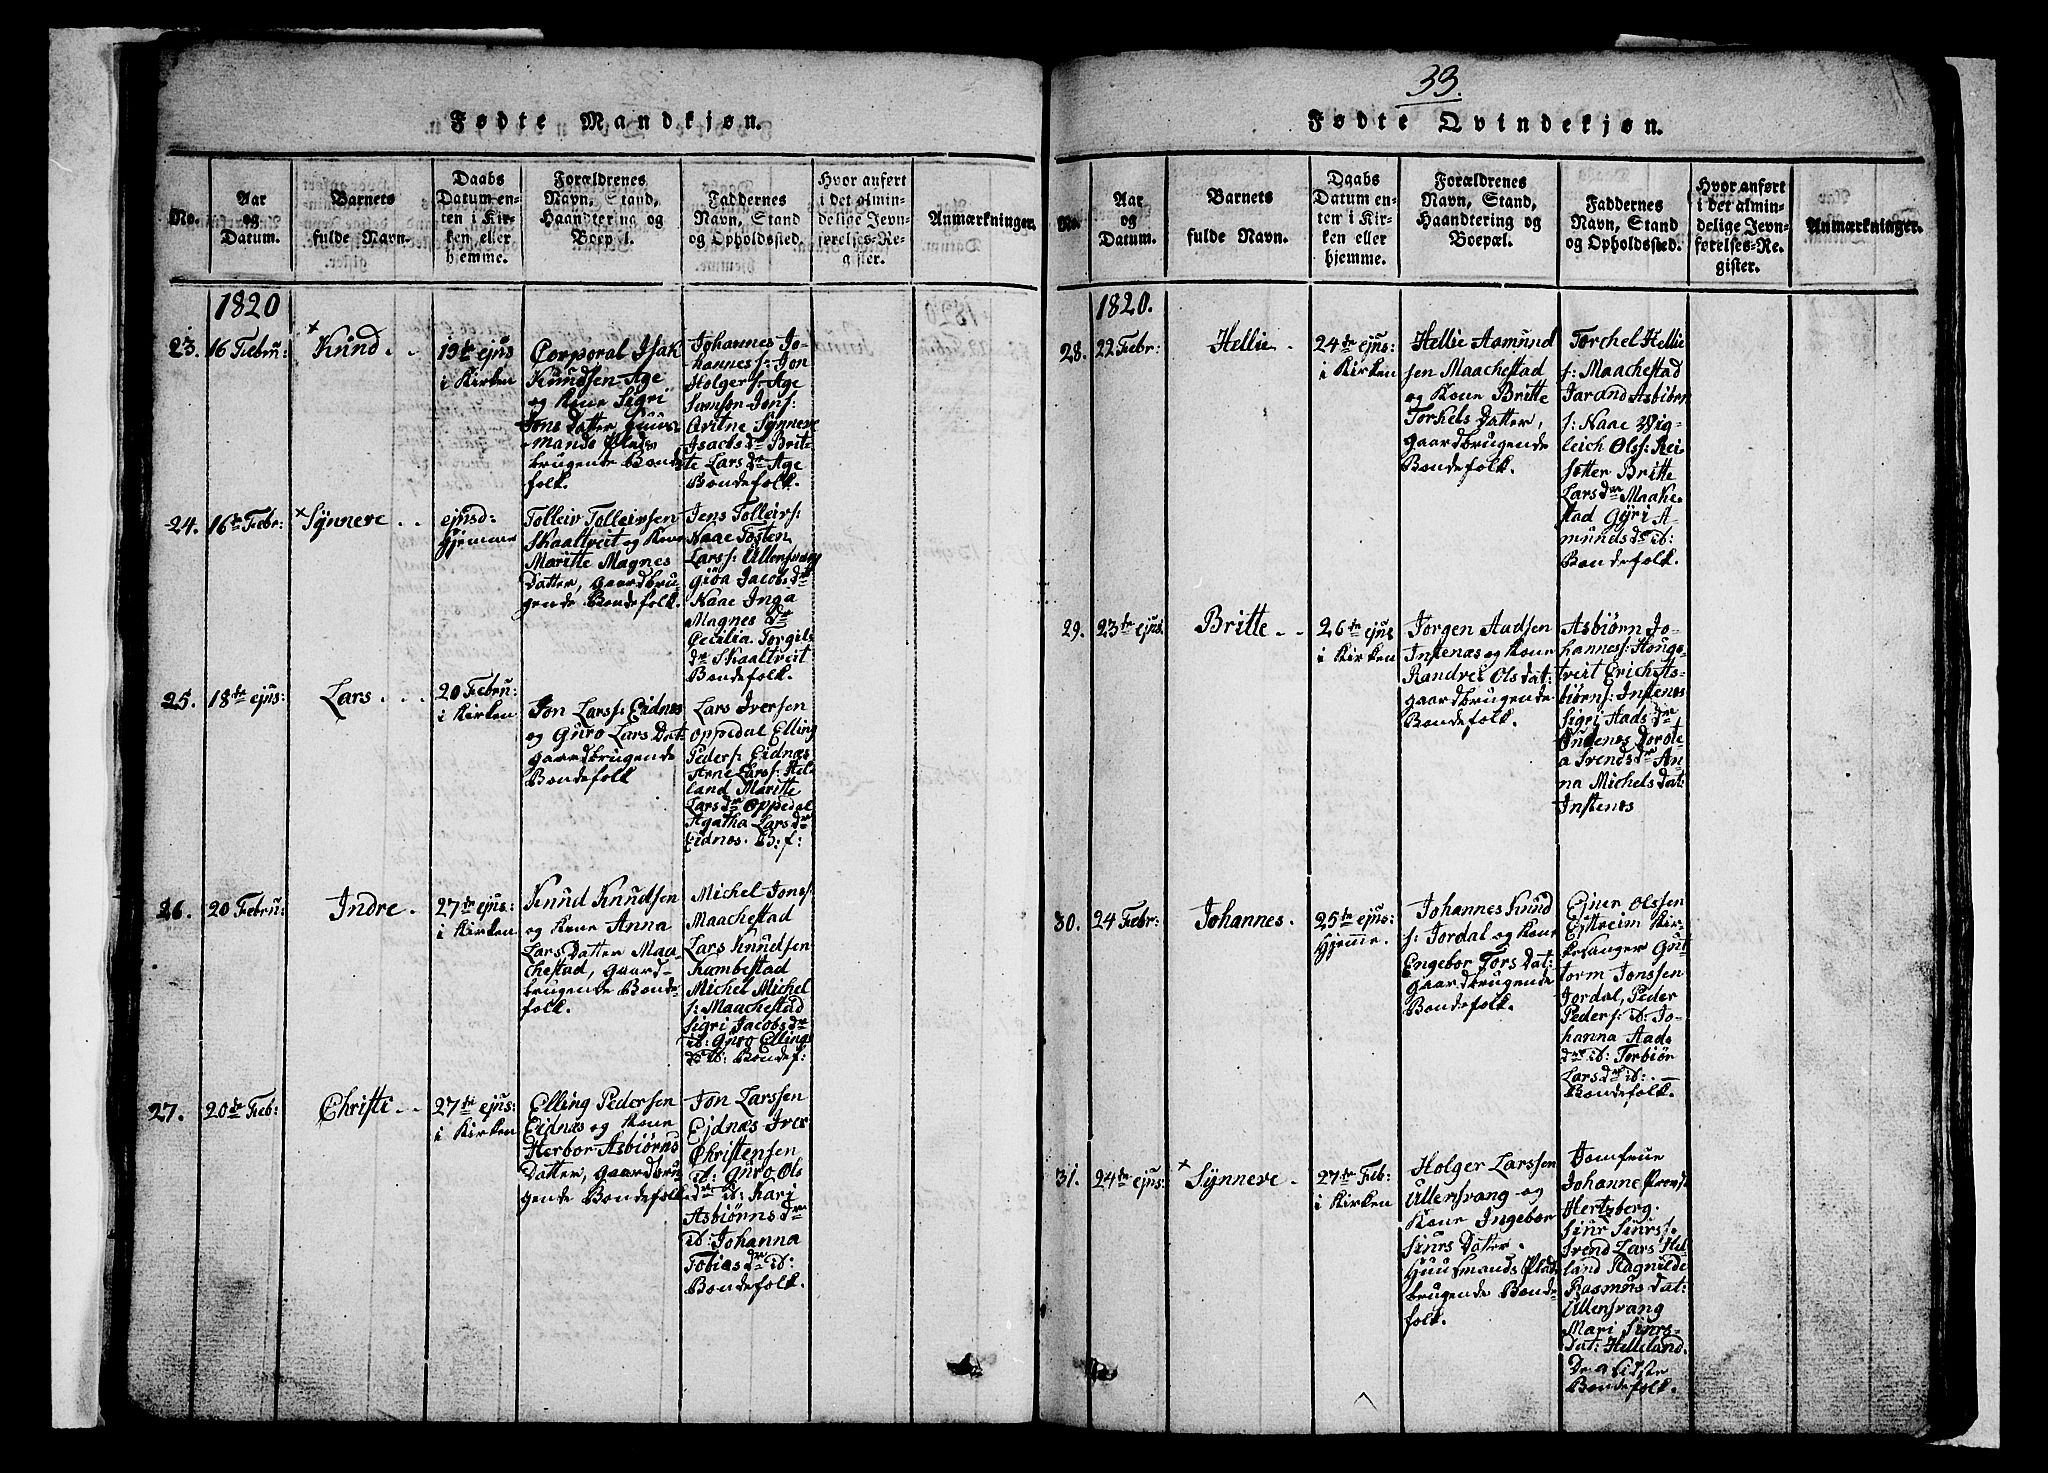 Fødte Mandkjøn.
No.
Aar
og
Datum.
Barnets
fulde Navn.
Daabs
Datum en-
ten i Kir-
ken eller
hjemme.
Forældrenes
Navn, Stand,
Haandtering og
Boepæl.
Faddernes
Navn, Stand
og Opholdssted.
Hvor anført
i det almin-
delige Jevn-
førelses-Re-
gister.
Anmærkninger.
1820
23.
16 Febru:
Knud
19de ejus
i Kirken
Corporal Isak
Knudsen Age
og Kone Sigri
Jons Datter Huus-
Mands Plads
brugende Bonde
folk.
Johannes Jo-
hanness: Jon
Holgers: Age
Samson Jons:
Qvitne Synneve
Isachs dr Brit-
te Lars dr Age
Bondefolk.
24.
16de Febr:
Synneve
ejusd:
hjemme
Tolleiv Tolleivsen
Skaaltveit og Kone
Maritte Magnes
Datter, gaardbru-
gende Bondefolk.
Jens Tolleivs:
Naae Tosten
Larss: Ullensvang
Giøa Jacobs dr
Naae Inga
Magnes dr
Cecilia Torgils
dr Skaaltveit
Bondefolk.
25.
18de ejus:
Lars
20 Febru:
i Kirken
Jon Larss: Eidnes
og Guro Lars Dat:
gaardbrugende
Bondefolk
Lars Iversen
Oppedal Elling
Peders: Eidnæs
Arne Larss: Hel-
land Maritte
Lars dr Oppedal
Agatha Lars dr
Eidnæs. B: f:
26.
20 Febru:
Indre
27de ejus:
i Kirken
Knud Knudsen
og Kone Anna
Lars Datter Maa-
chestad, gaard-
brugende Bonde-
folk.
Michel Jons:
Maachestad
Lars Knudsen
Kambestad
Michel Michel
s: Maachestad
Sigri Jacobs dr
ib: Guro Ellings
dr ib: Bondef:
27.
20de Feb:
Christe
27de ejus:
i Kirken
Elling Pedersen
Eidnæs og Kone
Herbor Asbiørns
Datter, gaardbru-
gende Bondefolk
Jon Larssen
Ejdnæs Iver
Christensen
ib: Guro Ols
dr ib: Kari
Asbiørns dr
ib: Johanna
Tobias dr ib:
Bondefolk.
33.
Fødte Qvindekjøn.
No.
Aar
og
Datum.
Barnets
fulde Navn.
Daabs
Datum en-
ten i Kir-
ken eller
hjemme.
Forældrenes
Navn, Stand,
Haandtering og
Boepæl.
Faddernes
Navn, Stand
og Opholdssted.
Hvor anført
i det almin-
delige Jevn-
førelses-Re-
gister.
Anmærkninger.
1820.
28.
22 Febr:
Hellie
24de ejus:
i Kirken
Hellie Aamund
sen Maachestad
og Kone Britte
Torkels Datter,
gaardbrugende
Bondefolk.
Torchel Hellie
s: Maachestad
Jarand Asbiørn
s: Naae Vig-
leich Olss: Rei-
sætter Britte
Lars dr Maake-
stad Gyri A-
munds dr ib:
Bondefolk.
29.
23de ejus.
Britte
26de ejus
i Kirken
Jorgen Aadsen
Instenæs og Kone
Randvei Ols dat:
gaardbrugende
Bondefolk.
Asbiørn Jo-
hanness: Houge-
tveit Erich As-
biørns: Instenæs
Sigri Aads dr
Indenæs Dorote-
a Svends dr An-
na Michels dat:
Instenæs
30.
24 Febr:
Johannes
25de ejus:
hjemme.
Johannes Knud
s: Jordal og Kone
Engebor Tors Dat:
gaardbrugende
Bondefolk.
Ejner Olssen
Eitreim Kir-
kesanger Gut-
torm Jonssen
Jordal, Peder
Peders: ib: Jo-
hanna Aads
dr ib: Torbiør
Lars dr ib:
Bondefolk.
31.
24de ejus:
Synneve
27de Feb:
i Kirken
Holger Larssen
Ullensvang og
Kone Ingebor
Siurs Datter.
Huusmands Plad
brugende Bonde-
folk.
Jomfrue
Johanne Provst
Hertzberg.
Siur Siurs:
Svend Lars: Hel-
land Ragnilde
Rasmus Dat:
Ullensvang
Mari Siurs-
Dat: Helleland.
De 4 sidste
Bondefolk.